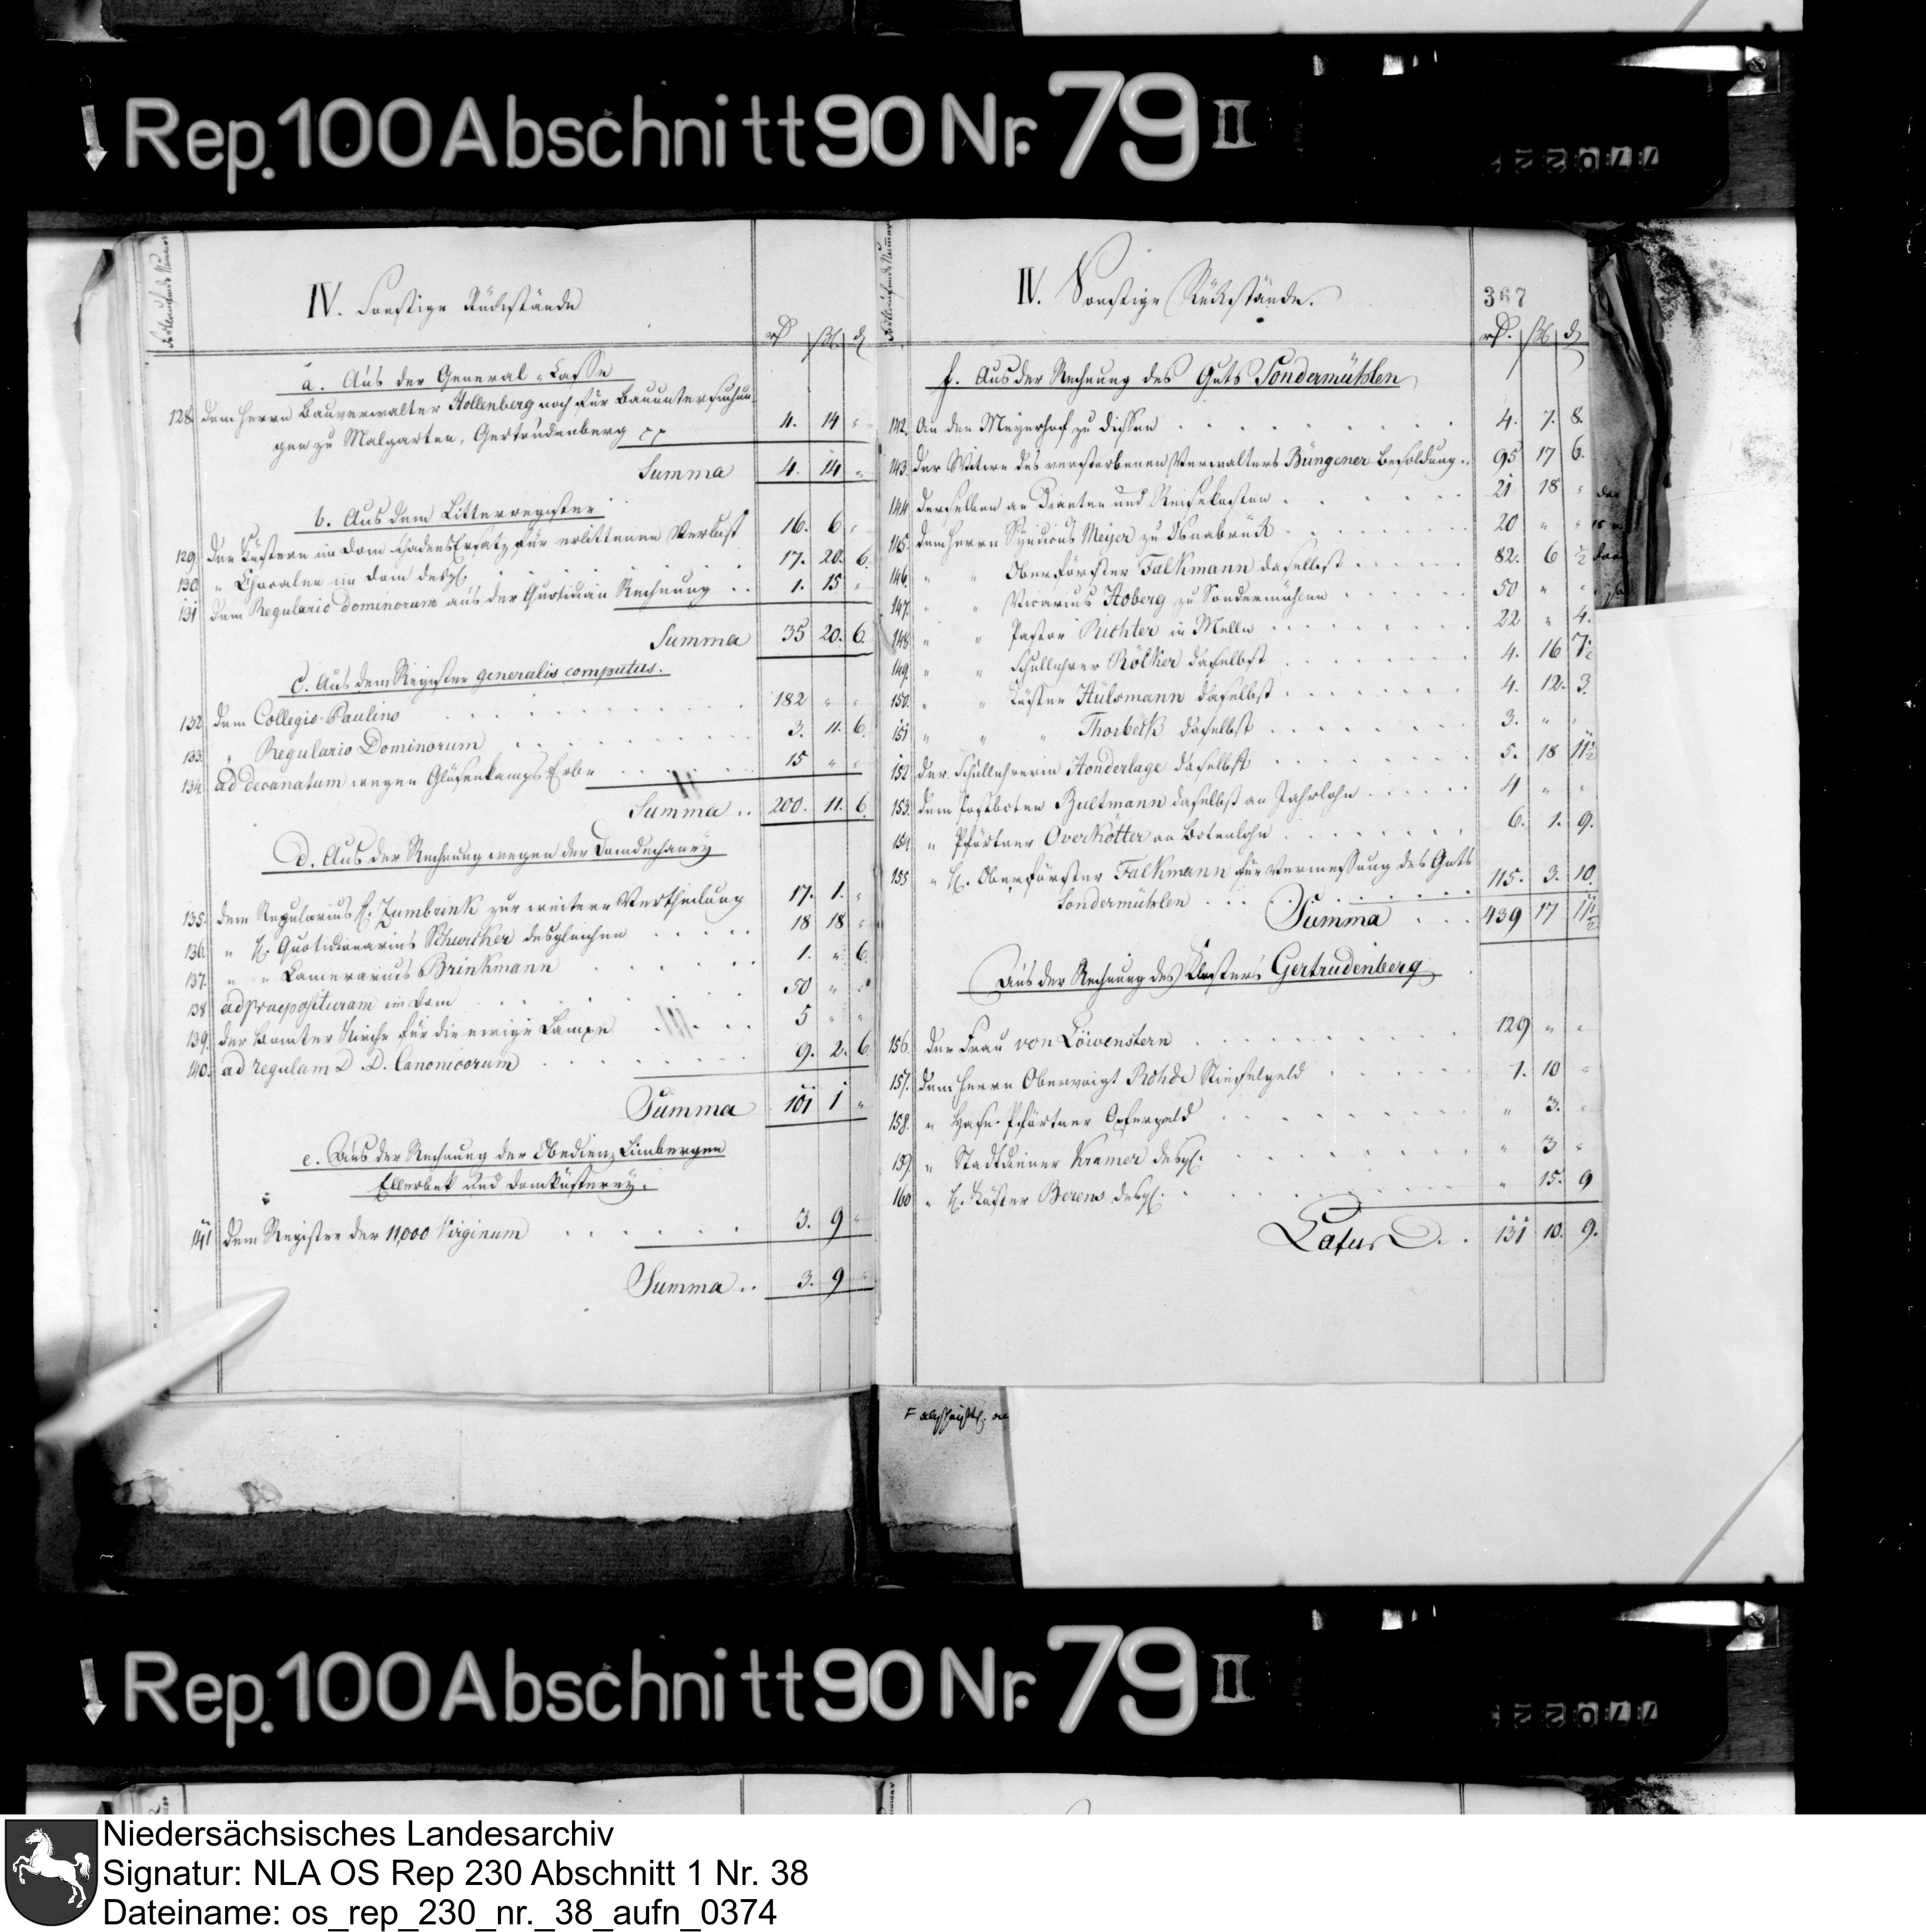 Rep. 100 Abschnitt 90 Nr. 79 II
Fortlaufende Nummer
IV. Sonstige Rückstände
a. Aus der General-Casse
128. dem Herrn Bauverwalter Hollenberg noch für Bauuntersuchun-
gen zu Malgarten, Gertrudenberg pp 4. 14 "
Summa 4. 14 "
b. Aus dem Litterregister
129. den Küstern im Dom Schadens Ersatz für erlittenen Verlust 16. 6 "
130. " Choralen im Dom desgl. 17. 20. 6.
131 dem Regulario Dominorum aus der Quotidian Rechnung .. 1. 15 "
Summa 35 20. 6.
C. Aus dem Register generalis computus.
132. dem Collegio Paulino 182 " "
133. " Regulario Dominorum 3. 11. 6.
134. ad decanatum wegen Glüsenkamps Erbe 15 " "
Summa .. 200. 11. 6.
d. Aus der Rechnung wegen der Domdechaney
135. dem Regularius H. Zumbrink zur weitern Vertheilung 17. 1. "
136. " H. Quotidianarius Schwicker desgleichen 18 18 "
137. " " Camerarius Brinkmann 1. " 6.
138 ad praeposituram im Dom 50 " "
139. der Bomter Kirche für die ewige Lampe 5 " "
140. ad regulam D. D. Canonicorum 9. 2. 6.
Summa 101 1 "
e. Aus der Rechnung der Obedienz Limbergen
Ellerbek und Domküsterey.
141 dem Register der 11,000 Virginum 3. 9 "
Summa .. 3. 9 "
Fortlaufende Nummer
IV. Sonstige Rückstände.
367
f. Aus der Rechnung des Guts Sondermühlen
142. An den Meyerhof zu Dissen 4. 7. 8.
143. der Witwe des verstorbenen Verwalters Büngener Besoldung .. 95 17 6.
144 derselben an Diaeten und Reisekosten 21 18 "
145. dem Herrn Syndicus Meyer zu Osnabrück 20 " "
146. " " Oberförster Falkmann daselbst 82. 6 ½
147. " " Vicarius Hoberg zu Sondermühlen 50 " "
148 " " Pastor Richter in Melle 22 " 4.
149. " " Schullehrer Rölker daselbst 4. 16 7½
150. " " Küster Hülsmann daselbst 4. 12. 3.
151 " " " Thorbeck daselbst 3. " "
152 der Schullehrerin Honderlage daselbst 5. 18 11½
153. dem Postboten Bultmann daselbst an Jahrlohn 4 " "
154 " Pförtner Overkötter an Botenlohn 6. 1. 9.
155 " H. Oberförster Falkmann für Vermessung des Guts
Sondermühlen 115. 3. 10.
Summa 439 17 11½
Aus der Rechnung des Klosters Gertrudenberg
156. der Frau von Löwenstern 129 " "
157. dem Herrn Obervoigt Rohde Stiefelgeld 1. 10 "
158. " Hase-Pförtner Opfergeld " 3. "
159 " Stadtdiener Kramer desgl. " 3 "
160 " H. Küster Berens desgl. " 15. 9
Latus .. 131 10. 9.
Rep. 100 Abschnitt 90 Nr. 79 II
Niedersächsisches Landesarchiv
Signatur: NLA OS Rep 230 Abschnitt 1 Nr. 38
Dateiname: os_rep_230_nr._38_aufn_0374